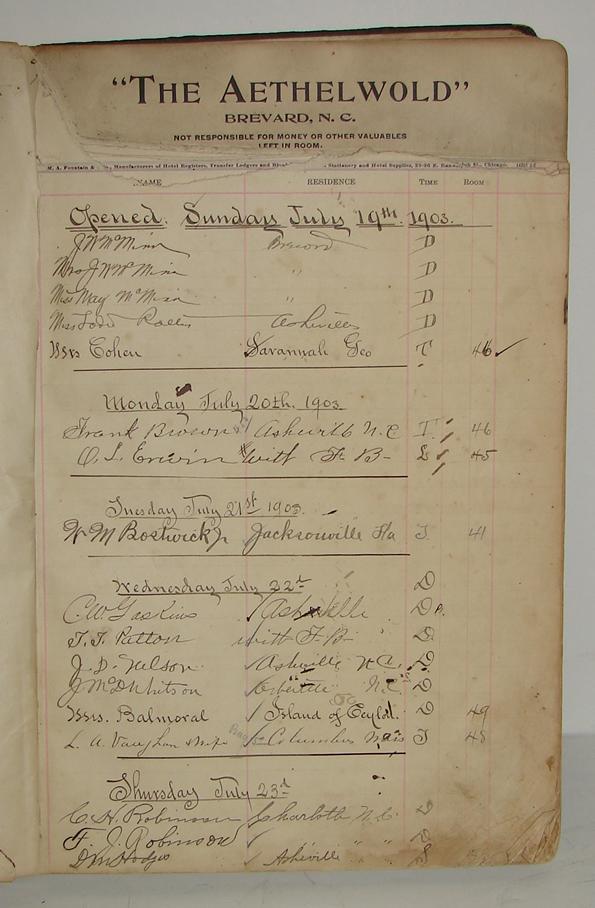 "THE AETHELWOLD"
BREVARD, N. C.
NOT RESPONSIBLE FOR MONEY OR OTHER VALUABLES
LEFT IN ROOM.
M. A. Fountain & Manufacturers of Hotel Registers, Transfer Ledgers and Stationery and Hotel Supplies, Chicago.
NAME RESIDENCE TIME ROOM
Opened. Sunday July 19th. 1903.
J W McMinn Brevard D
Mrs J W McMinn " D
Miss May McMinn " D
Miss Asheville D
Cohen Savannah Geo T 46 ✓
Monday July 20th. 1903.
Frank Brown Asheville N.C 46
O. L. Erwin with F- B- 45
Tuesday July 21st 1903.
W M Bostwick Jr Jacksonville Fla 41
Wednesday July 22d D
C W Gaskins Asheville D
T. T. Patton with F- B- D
J. D. Nelson Asheville N.C. D
J McD Whitson N.C. D
Balmoral Island of Ceylon. D 49
L. A. Vaughan & Wife Columbus
Thursday July 23d
C. H. Robinson Charlotte N.C.
F. J. Robinson
D M Hodges Asheville " "